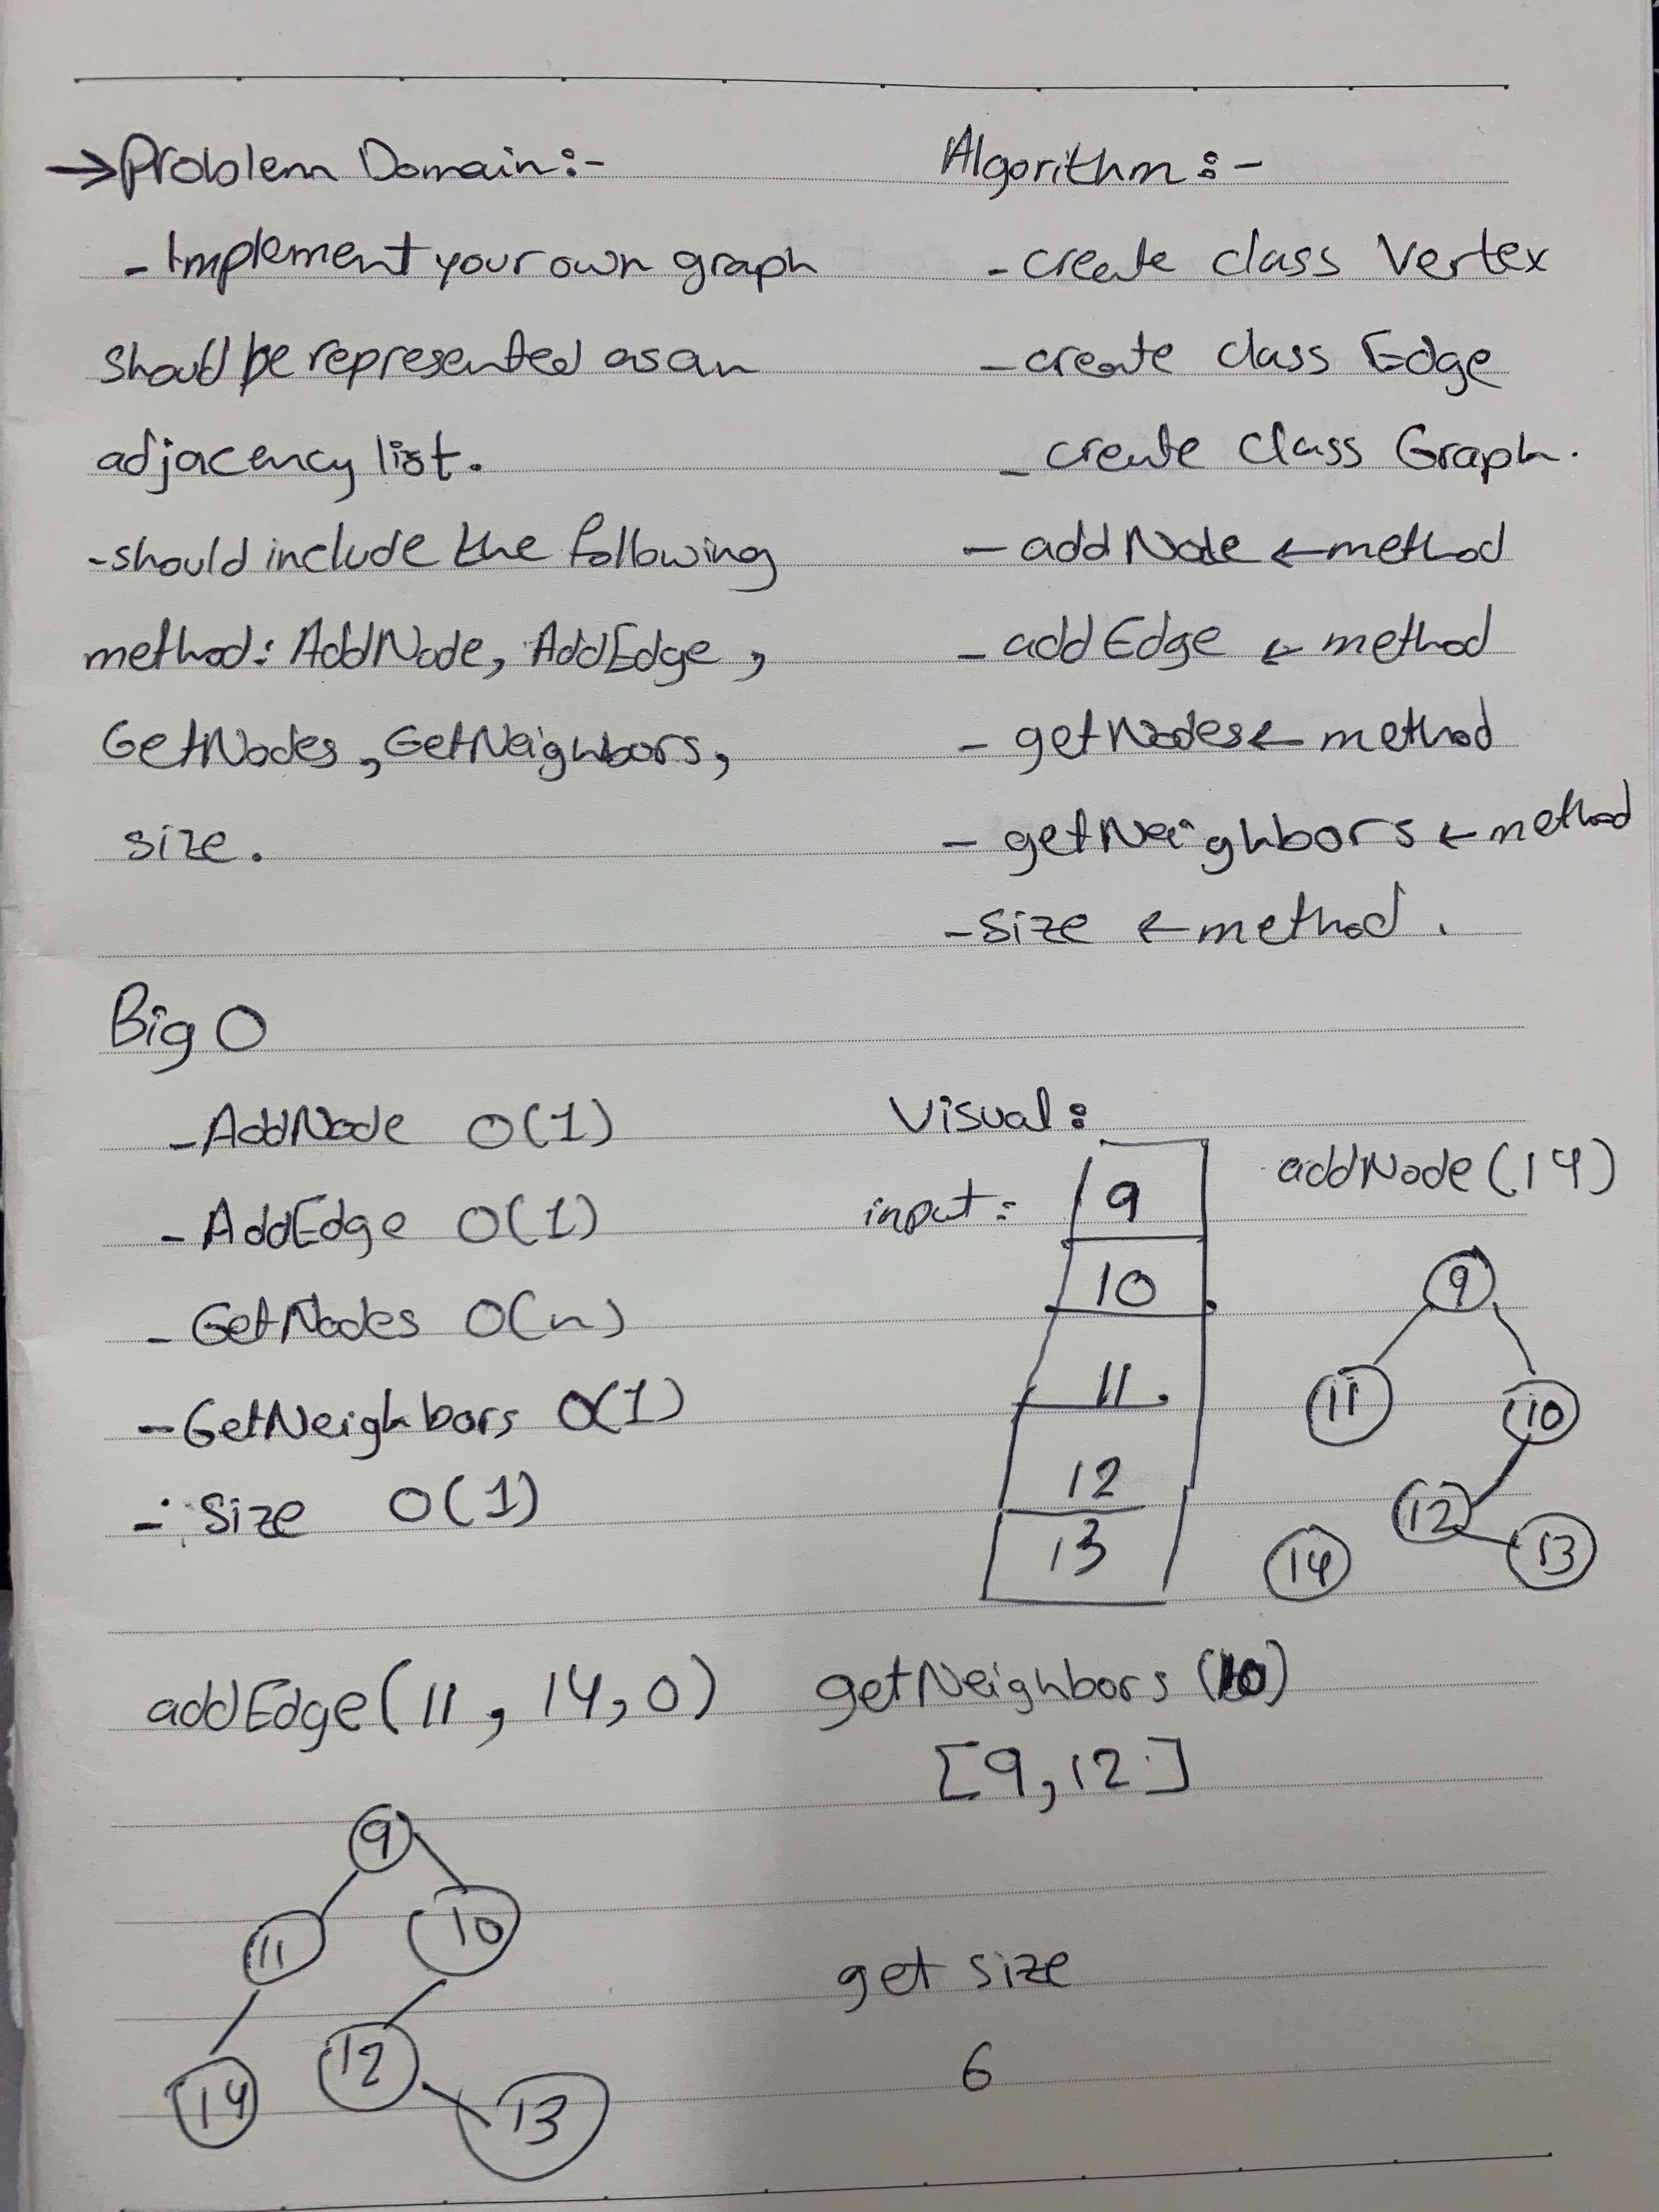 →Problem Domain:-
- Implement your own graph
should be represented as an
adjacency list.
-should include the following
method: AddNode, AddEdge,
GetNodes, GetNeighbors,
size.
Algorithm:-
-create class Vertex
-create class Edge
-create class Graph.
- addNode ← method
- addEdge ← method
- getNodes ← method
- getNeighbors ← method
- size ← method.
Big O
- AddNode O(1)
- AddEdge O(1)
- GetNodes O(n)
- GetNeighbors O(1)
- Size O(1)
Visual:
input:
9
10
11
12
13
addNode(14)
9
11
10
12
14
13
addEdge(11, 14, 0)
9
11
10
14
12
13
getNeighbors (10)
[9,12]
get size
6